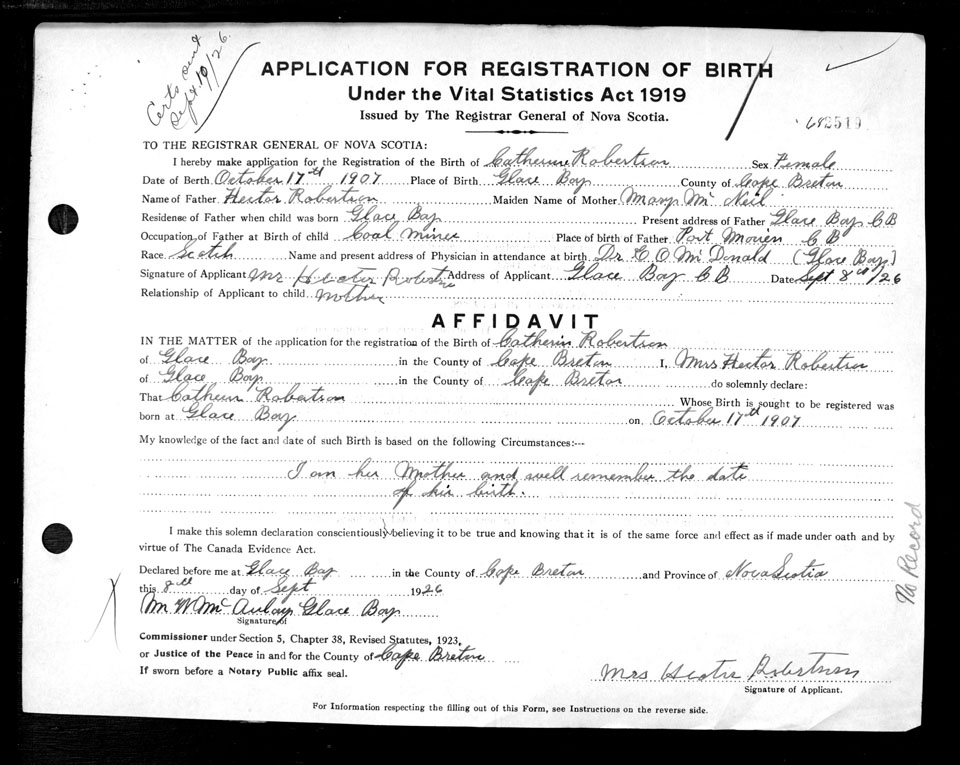 Certs sent
Sept 10/26.
APPLICATION FOR REGISTRATION OF BIRTH
Under the Vital Statistics Act 1919
Issued by The Registrar General of Nova Scotia.
TO THE REGISTRAR GENERAL OF NOVA SCOTIA:
I hereby make application for the Registration of the Birth of Catherine Robertson Sex Female
Date of Berth October 17th 1907 Place of Birth Glace Bay County of Cape Breton
Name of Father Hector Robertson Maiden Name of Mother Mary McNeil
Residence of Father when child was born Glace Bay Present address of Father Glace Bay C B
Occupation of Father at Birth of child Coal Place of birth of Father Port Morien C B
Race Scotch Name and present address of Physician in attendance at birth Dr. McDonald (Glace Bay)
Signature of Applicant Mrs Hector Robertson Address of Applicant Glace Bay C B Date Sept 8th/26
Relationship of Applicant to child Mother
AFFIDAVIT
IN THE MATTER of the application for the registration of the Birth of Catherin Robertson
of Glace Bay in the County of Cape Breton I, Mrs Hector Robertson
of Glace Bay in the County of Cape Breton do solemnly declare:
That Robertson Whose Birth is sought to be registered was
born at Glace Bay on October 17th 1907
My knowledge of the fact and date of such Birth is based on the following Circumstances:—
I am her Mother and well remember the date
of her birth.
I make this solemn declaration conscientiously believing it to be true and knowing that it is of the same force and effect as if made under oath and by
virtue of The Canada Evidence Act.
Declared before me at Glace Bay in the County of Cape Breton and Province of Nova Scotia
this 8th day of Sept 1926
Wm W McAulay Glace Bay
Signature of
Commissioner under Section 5, Chapter 38, Revised Statutes, 1923,
or Justice of the Peace in and for the County of Cape Breton
If sworn before a Notary Public affix seal.
Mrs Hector Robertson
Signature of Applicant.
For Information respecting the filling out of this Form, see Instructions on the reverse side.
No Record